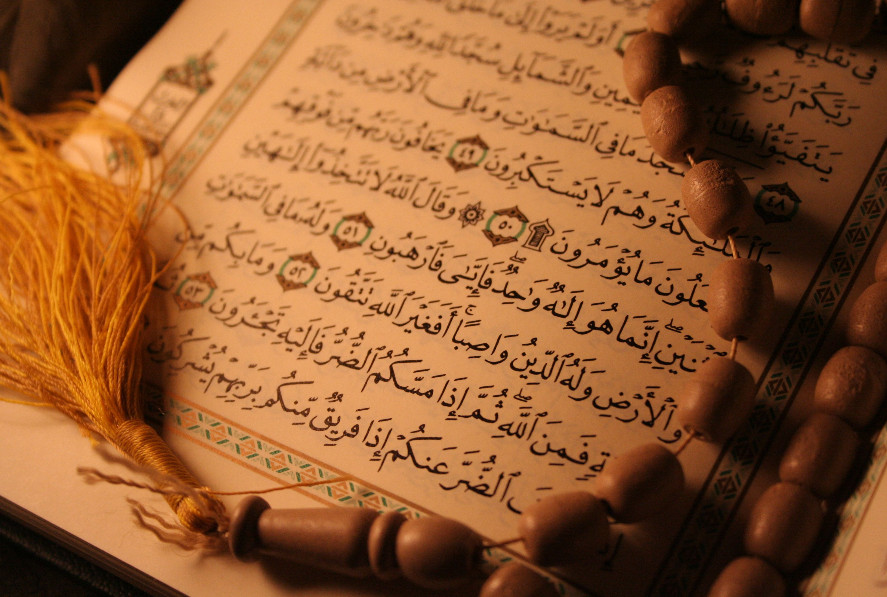 فِى تَقَلُّبِهِمْ
رَبَّكُمْ أَوَلَمْ يَرَوْا۟ إِلَىٰ مَا خَلَقَ
يَتَفَيَّؤُا۟ ظِلَٰلُهُۥ وَٱلشَّمَآئِلِ سُجَّدًا لِّلَّهِ وَهُمْ دَٰخِرُونَ ٤٨
مَا فِى ٱلسَّمَٰوَٰتِ وَمَا فِى ٱلْأَرْضِ مِن دَآبَّةٍ
وَٱلْمَلَٰٓئِكَةُ وَهُمْ لَا يَسْتَكْبِرُونَ ٤٩ يَخَافُونَ رَبَّهُم مِّن فَوْقِهِمْ
مَا يُؤْمَرُونَ ۩ ٥٠ ۞ وَقَالَ ٱللَّهُ لَا تَتَّخِذُوٓا۟ إِلَٰهَيْنِ
إِنَّمَا هُوَ إِلَٰهٌ وَٰحِدٌ ۖ فَإِيَّٰىَ فَٱرْهَبُونِ ٥١ وَلَهُۥ مَا فِى ٱلسَّمَٰوَٰتِ
وَٱلْأَرْضِ وَلَهُ ٱلدِّينُ وَاصِبًا ۚ أَفَغَيْرَ ٱللَّهِ تَتَّقُونَ ٥٢ وَمَا بِكُم مِّن
فَمِنَ ٱللَّهِ ۖ ثُمَّ إِذَا مَسَّكُمُ ٱلضُّرُّ فَإِلَيْهِ تَجْـَٔرُونَ ٥٣
ٱلضُّرَّ عَنكُمْ إِذَا فَرِيقٌ مِّنكُم بِرَبِّهِمْ يُشْرِكُونَ